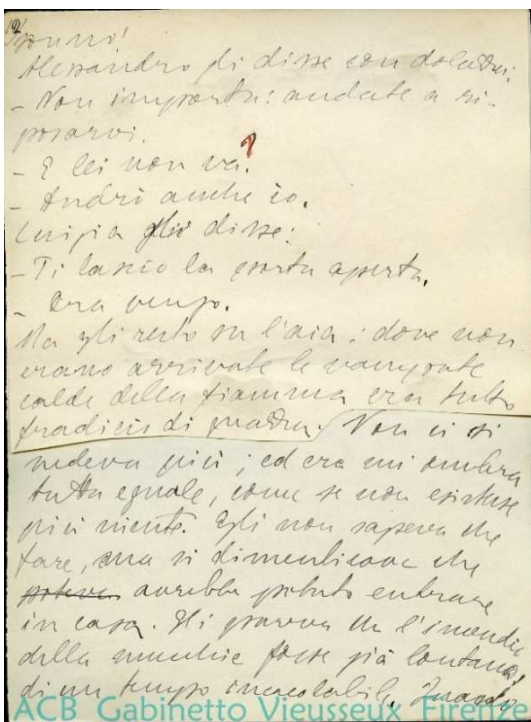 sonno!
Alessandro gli disse con dolcezza:
- Non importa: andate a ri-
posarvi.
- E lei non va?
- Andrò anche io.
Luigia gli disse:
- Ti lascio la porta aperta.
- Ora vengo.
Ma egli restò su l'aia; dove non
erano arrivate le vampate
calde della fiamma era tutto
fradicio di guazza. Non ci si
vedeva più; ed era un'ombra
tutta eguale, come se non esistesse
più niente. Egli non sapeva che
fare, ma si dimenticava che
poteva avrebbe potuto entrare
in casa. Gli pareva che l'incendio
della mucchie fosse già lontano,
di un tempo incalcolabile. Quando
ACB Gabinetto Vieusseux Firenze